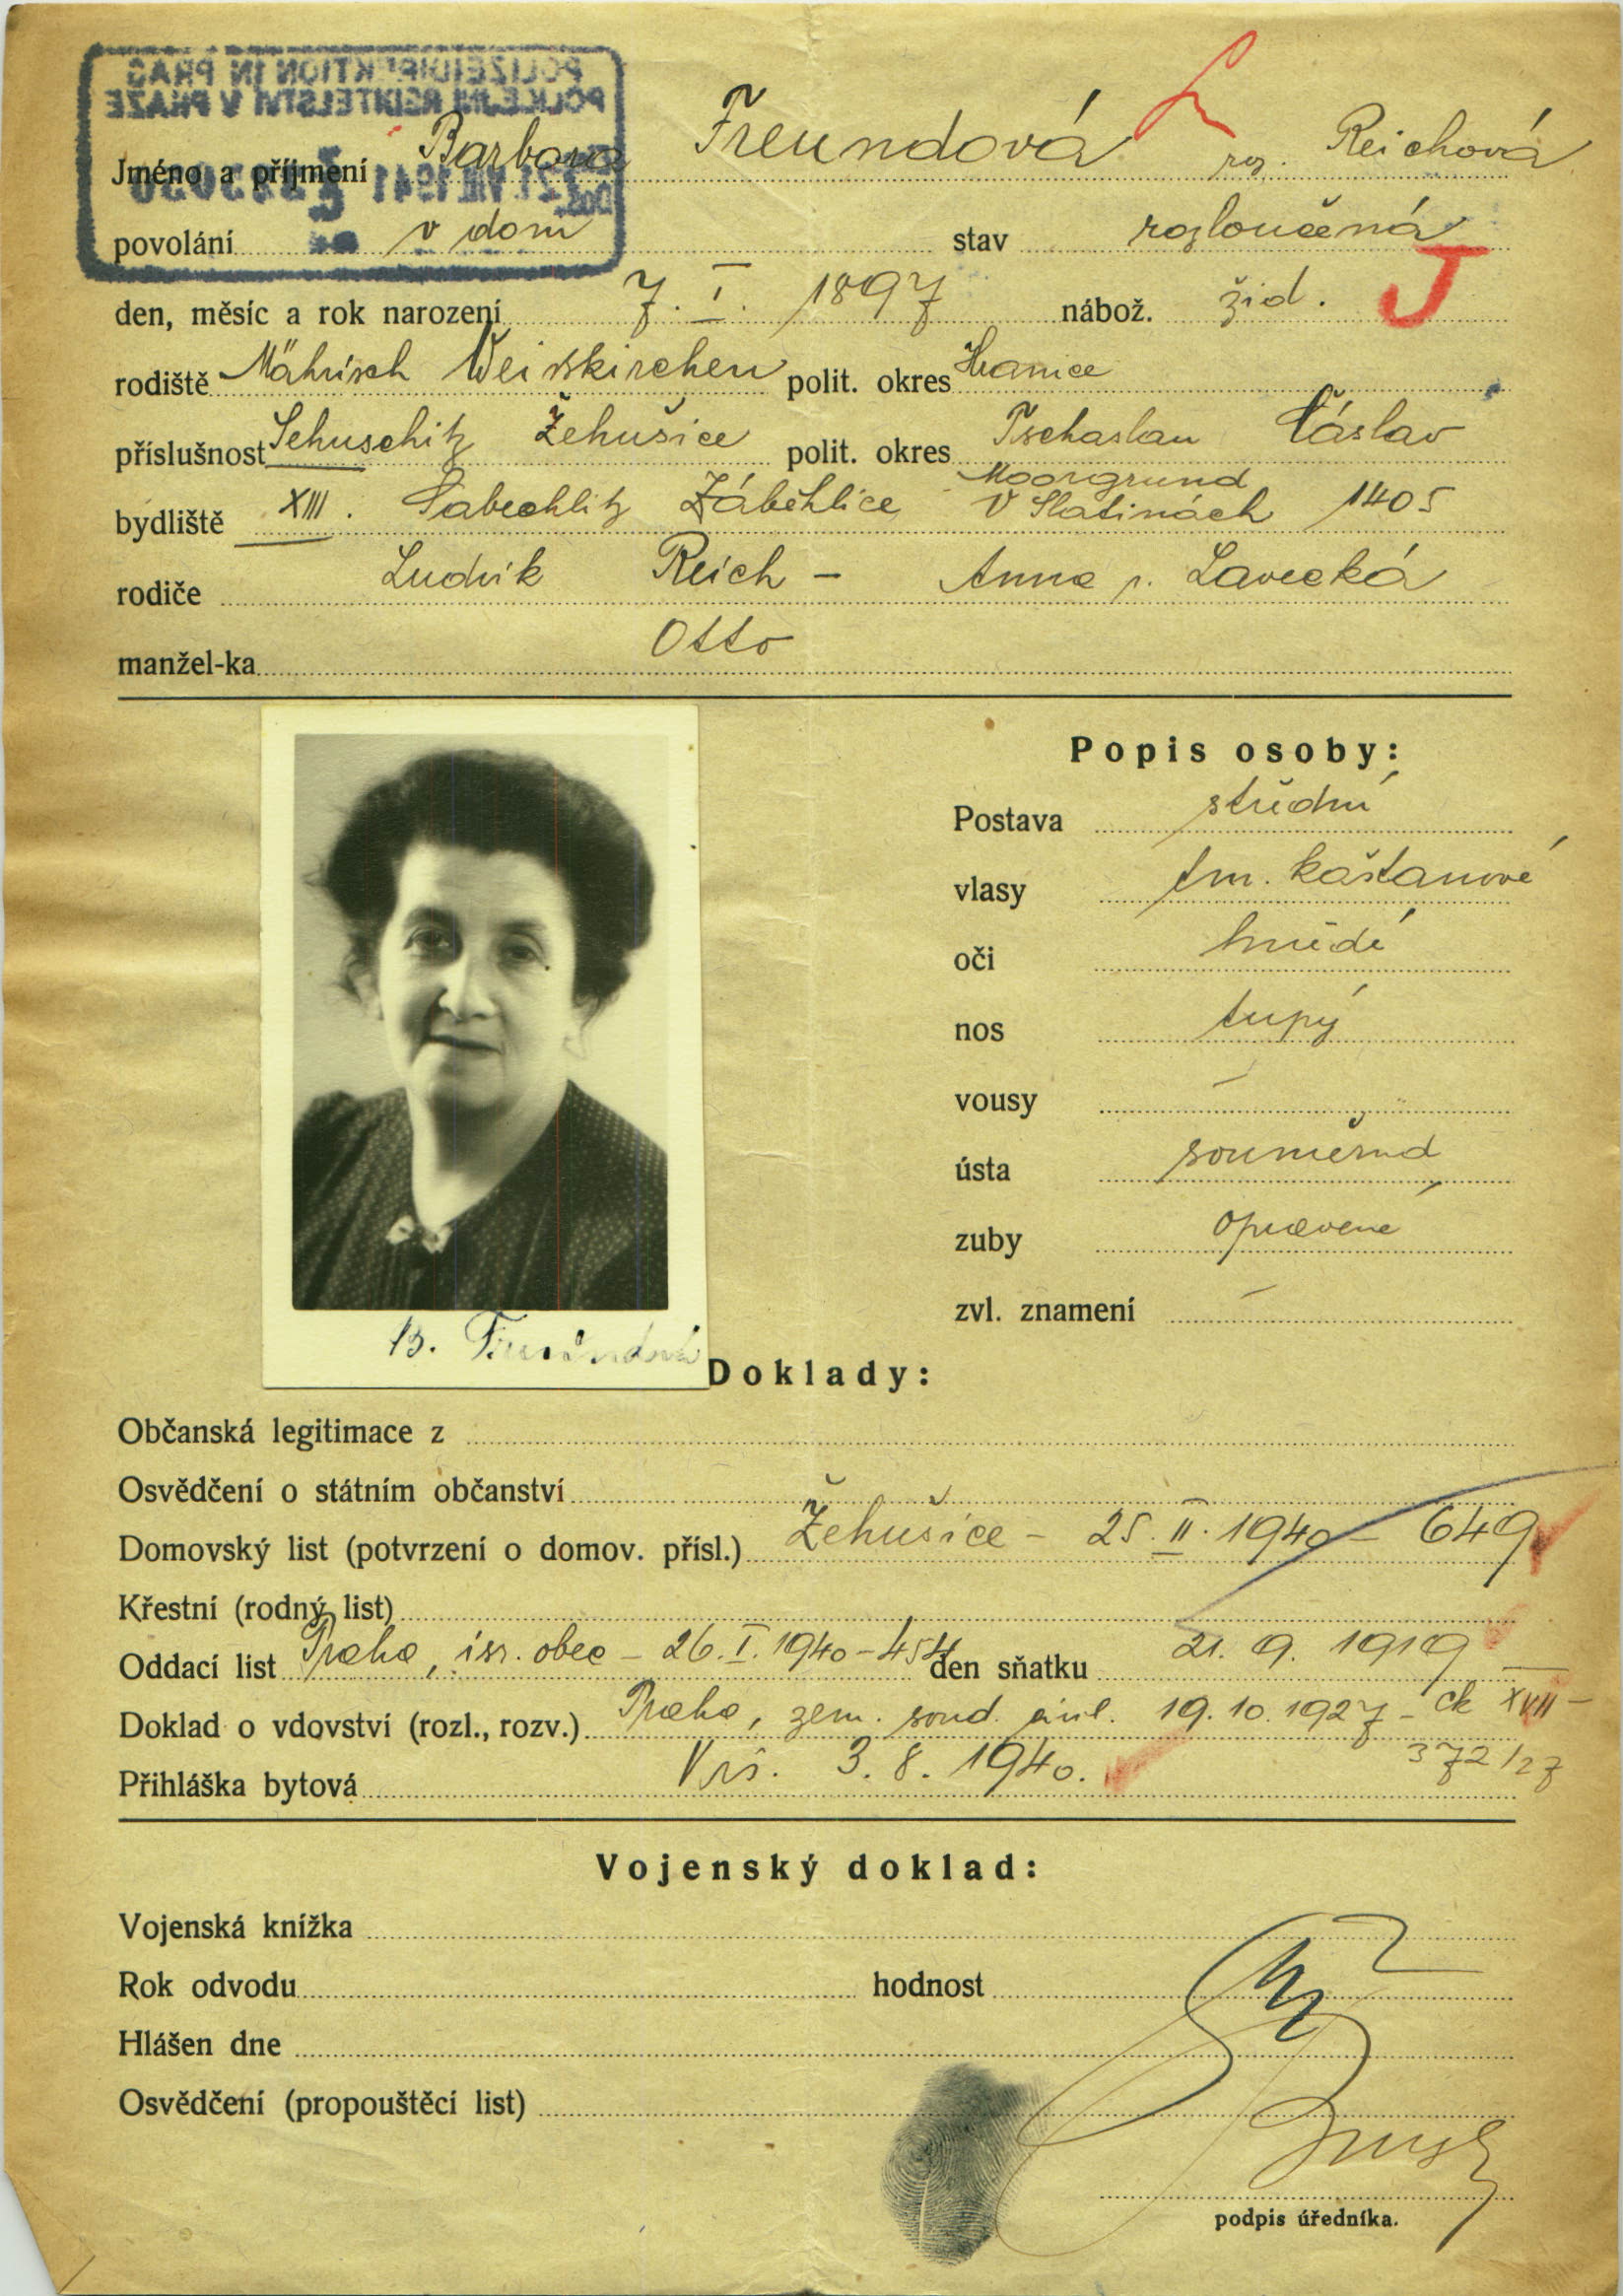 POLIZEIDIREKTION IN PRAG
POLICEJNÍ ŘEDITELSTVÍ V PRAZE
Jméno a příjmení Barbora Freundová roz. Reichová
21 VII 1941
povolání v dom stav rozloučená
den, měsíc a rok narození 7. I. 1897 nábož. žid. J
rodiště Mährisch Weisskirchen polit. okres Hranice
příslušnost Sehuschitz Žehušice polit. okres Tschaslau Čáslav
Moorgrund
bydliště XIII. Sabechlitz Záběhlice V Slatinách 1405
rodiče Ludvik Reich - Anna r. Lavecká
manžel-ka Otto
Popis osoby:
Postava střední
vlasy tm. kaštanové
oči hnědé
nos tupý
vousy –
ústa souměrná
zuby opravené
zvl. znamení –
B. Freundová
Doklady:
Občanská legitimace z
Osvědčení o státním občanství
Domovský list (potvrzení o domov. přísl.) Žehušice - 25. II. 1940 - 649
Křestní (rodný list)
Oddací list Praha, isr. obec - 26. I. 1940 - 454 den sňatku 21. 9. 1919
Doklad o vdovství (rozl., rozv.) Praha, zem. soud. civil. 19. 10. 1927 - Ck XVII -
372/27
Přihláška bytová Vrš. 3. 8. 1940.
Vojenský doklad:
Vojenská knížka
Rok odvodu hodnost
Hlášen dne
Osvědčení (propouštěcí list)
podpis úředníka.